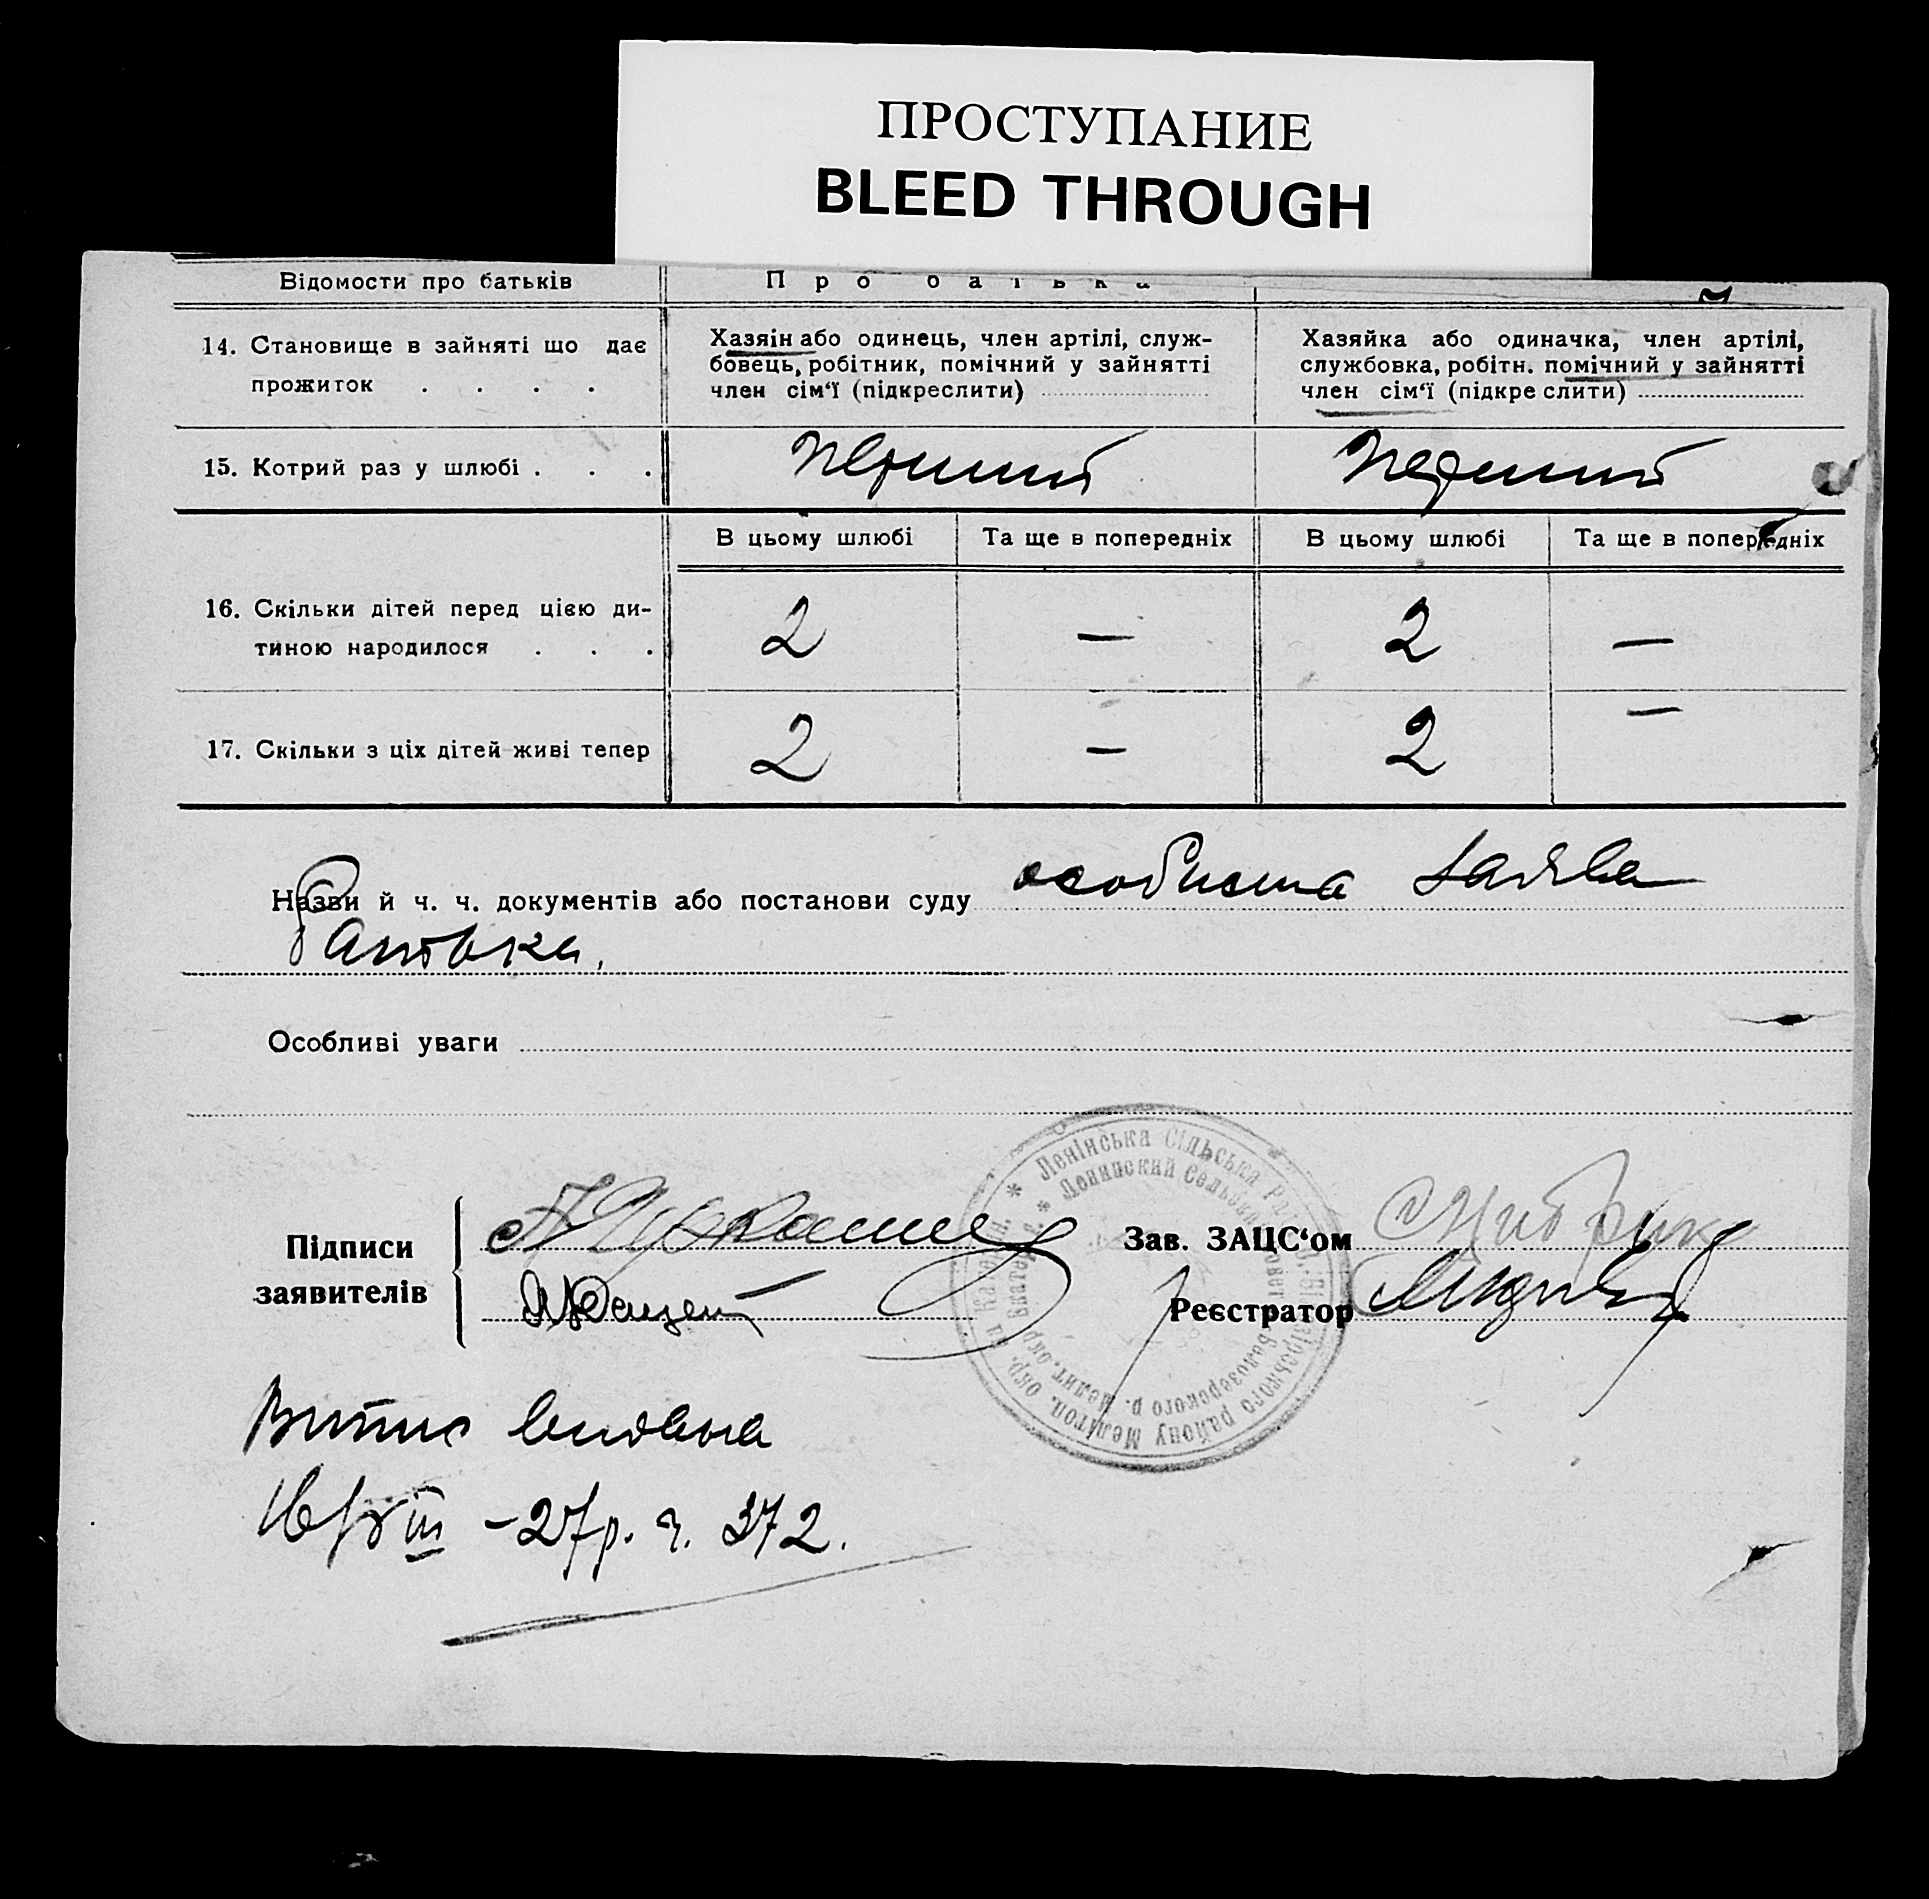 ПРОСТУПАНИЕ
BLEED THROUGH
Відомости про батьків
Про батька
14. Становище в зайняті що дає прожиток . . . .
Хазяін або одинець, член артілі, служ-
бовець, робітник, помічний у зайнятті
член сім‘ї (підкреслити)
Хазяйка або одиначка, член артілі,
службовка, робітн. помічний у зайнятті
член сім‘ї (підкреслити)
15. Котрий раз у шлюбі . . .
перший
перший
В цьому шлюбі
Та ще в попередніх
В цьому шлюбі
Та ще в попередніх
16. Скільки дітей перед цією ди-
тиною народилося . . .
2 — 2 —
17. Скільки з ціх дітей живі тепер
2 — 2 —
Назви й ч. ч. документів або постанови суду особиста заява
батька.
Особливі уваги
Підписи
заявителів
Зав. ЗАЦС‘ом
Реєстратор
* Ленінська Сільська Рада, Білозірського району Мелітоп. окр. на Катерин. *
Ленинский Сельсовет Белозерского р. Мелит. окр Екатер. *
Витис видана
III – 27р. ч. 372.